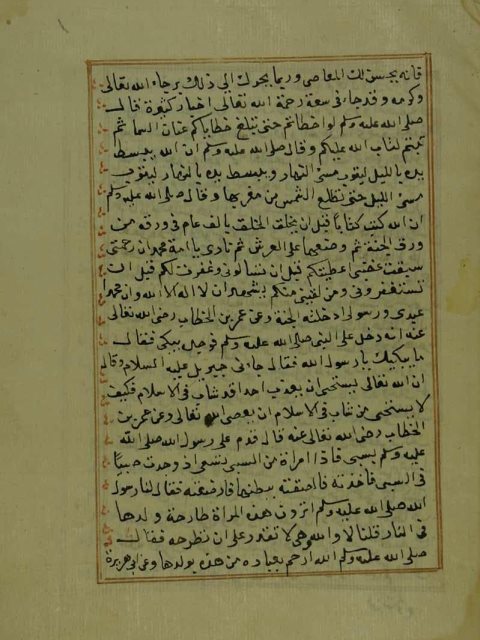 فانه يحسن لك المعاصي وربما يجرك الى ذلك برجاء الله تعالى
وكرمه وقد جاء في سعة رحمة الله تعالى اخبار كثيرة قال
صلى الله عليه وسلم لو اخطاتم حتى تبلغ خطاياكم عنان السما ثم
تبتم لتاب الله عليكم وقال صلى الله عليه وسلم ان الله يبسط
يده بالليل ليتوب مسئ النهار ويبسط يده بالنهار ليتوب
مسئ الليل حتى تطلع الشمس من مغربها وقال صلى الله عليه وسلم
ان الله كتب كتابا قبل ان يخلق الخلق بالف عام في ورقة من
ورق الجنة ثم وضعها على العرش ثم نادى يا امة محمد ان رحمتي
سبقت غضبي اعطيتكم قبل ان تسالوني وغفرت لكم قبل ان
تستغفروني ومن لقيني منكم يشهد ان لا اله الا الله وان محمدا
عبدي ورسولي ادخلته الجنة وعن عمر بن الخطاب رضي الله تعالى
عنه انه دخل على النبي صلى الله عليه وسلم فوجده يبكي فقال
ما يبكيك يا رسول الله فقال جاءني جبريل عليه السلام وقال
ان الله تعالى يستحيي ان يعذب احدا قد شاب في الاسلام فكيف
لا يستحي من شاب في الاسلام ان يعصي الله تعالى وعن عمر بن
الخطاب رضي الله تعالى عنه قال قدم على رسول الله صلى الله
عليه وسلم بسبي فاذا امراة من السبي تسعى اذ وجدت صبيا
في السبي فاخذته فالصقته ببطنها فارضعته فقال لنا رسول
الله صلى الله عليه وسلم اترون هذه المراة طارحة ولدها
في النار قلنا لا والله وهي لا تقدر على ان تطرحه فقال
صلى الله عليه وسلم الله ارحم بعباده من هذه بولدها وعن ابي هريرة